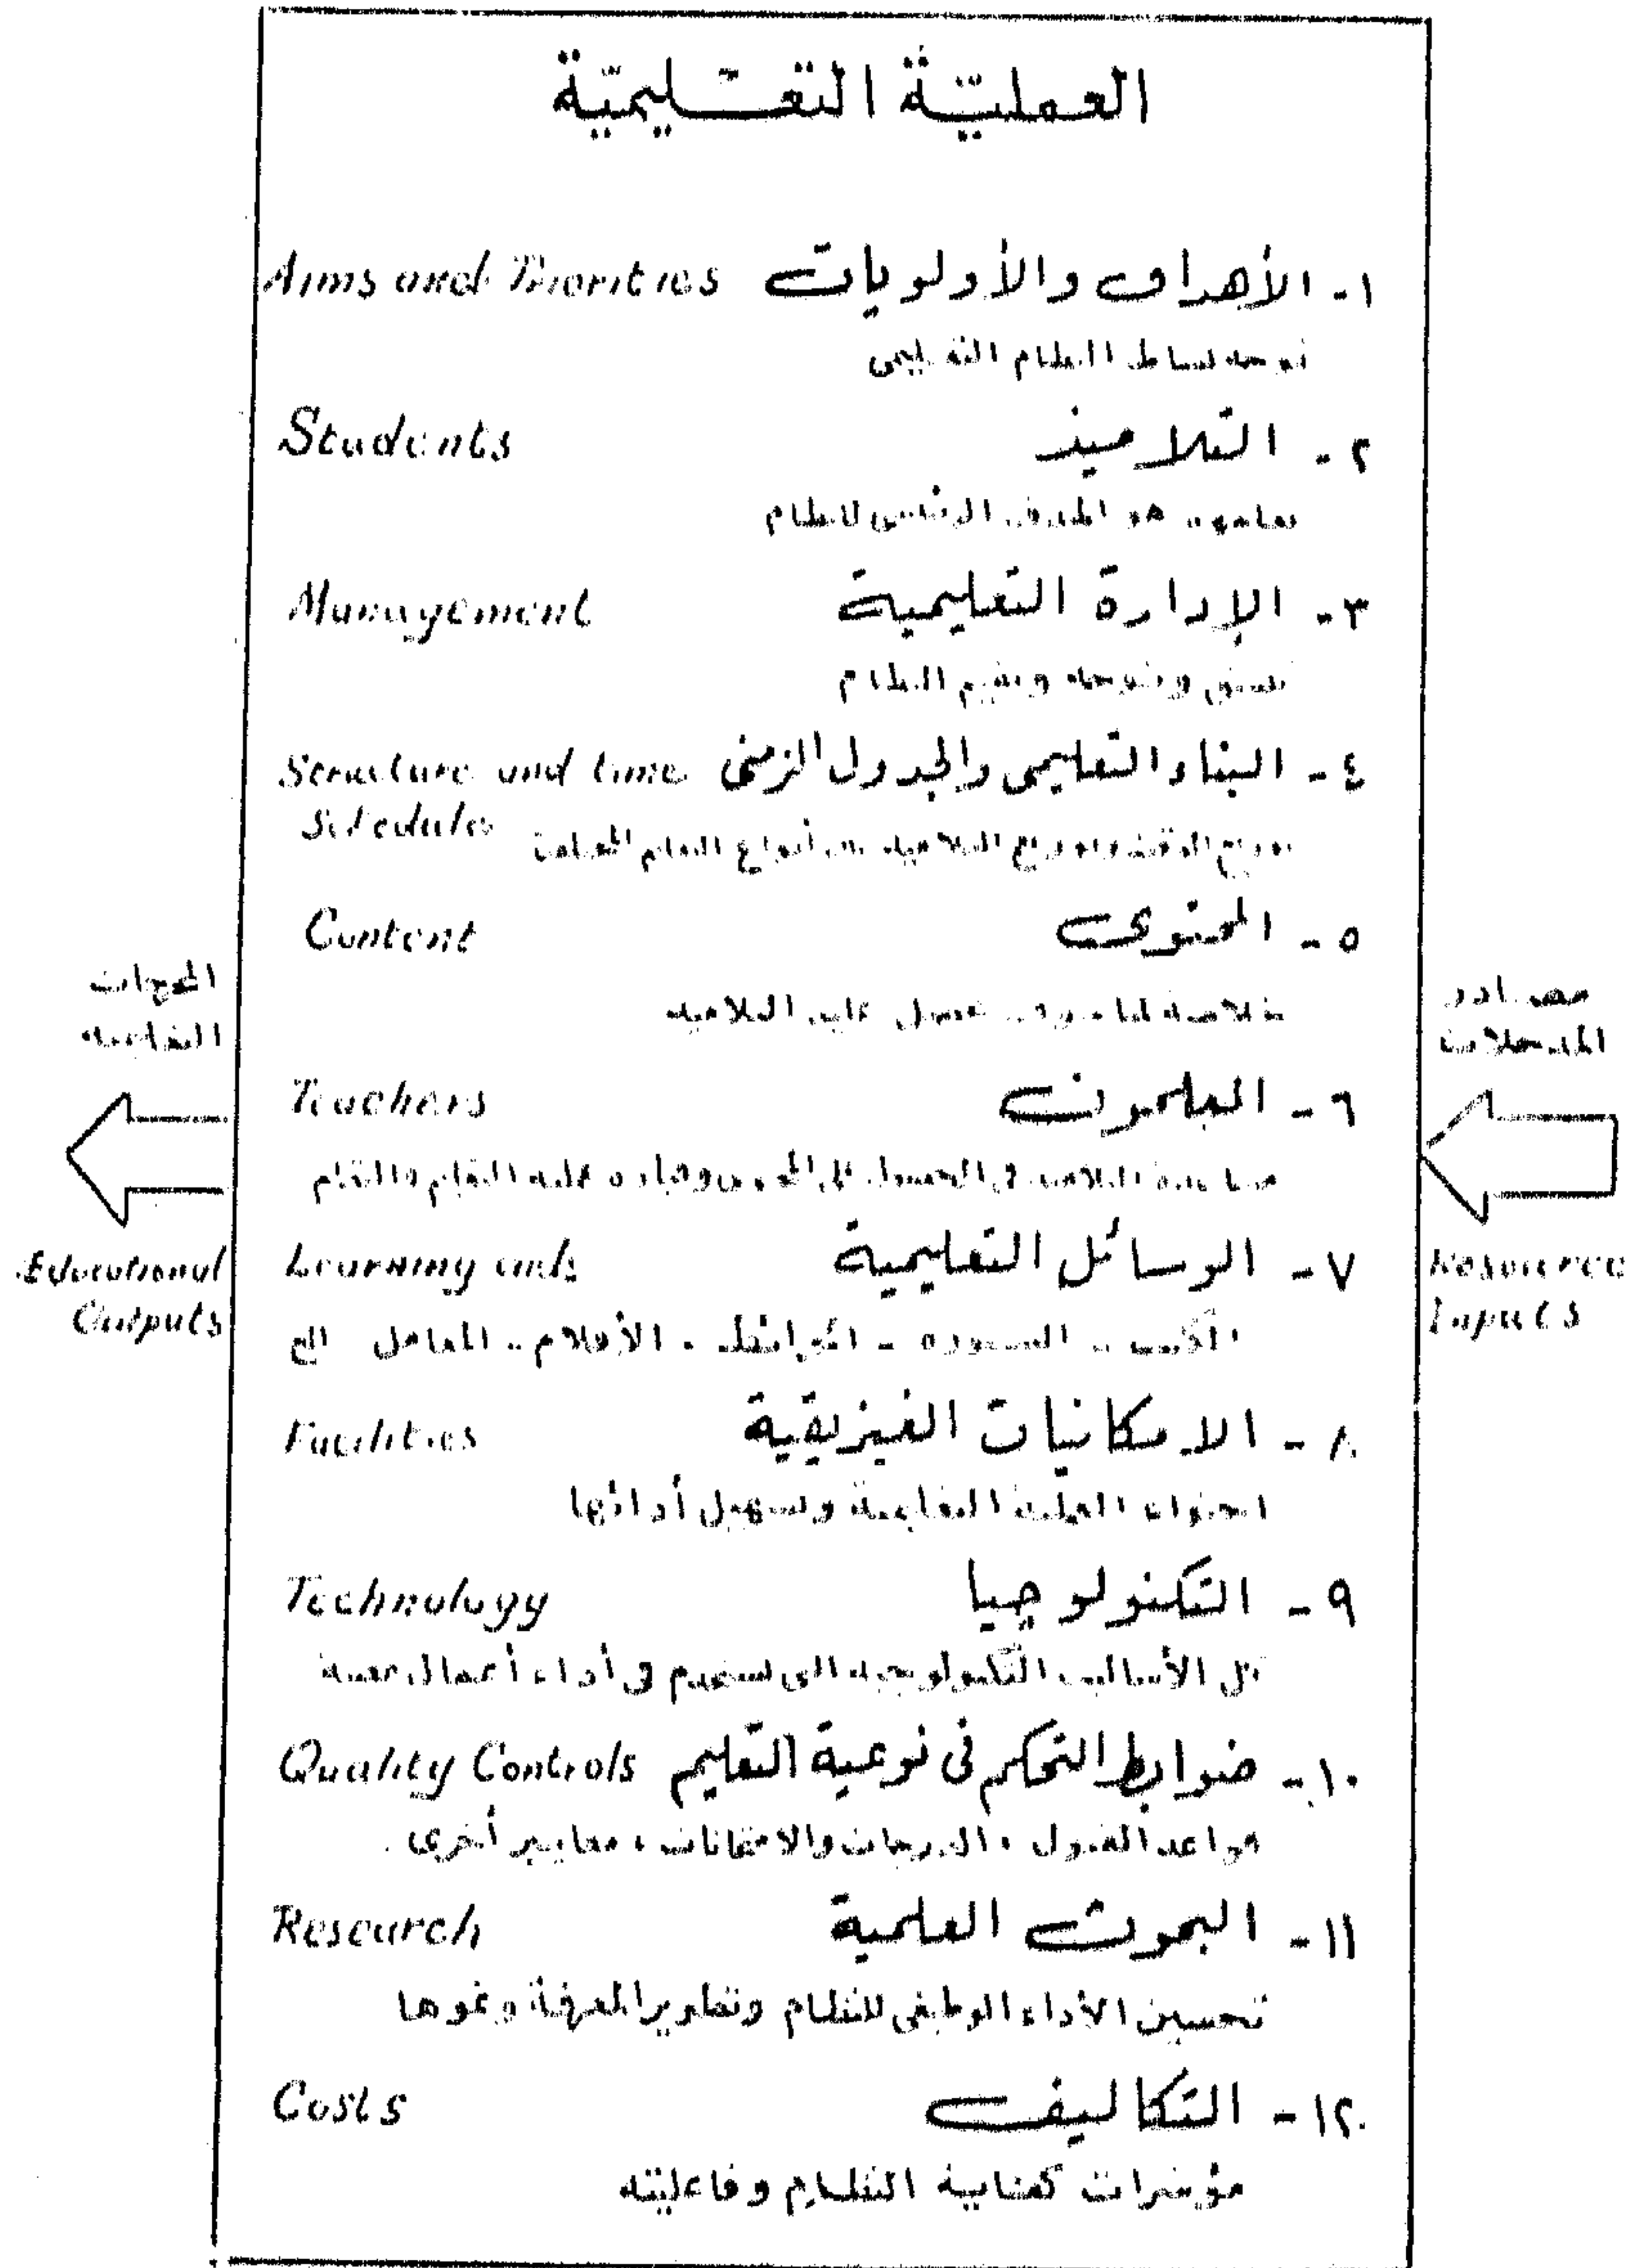 العملية التعليمية
١- الأهداف والأولويات Aims and Priorities
توجه نشاط النظام التعليمى
٢- التلاميذ Students
تعليمهم هو الهدف الرئيسى للنظام
٣- الإدارة التعليمية Management
تنسق وتوجه وتقيم النظام
٤- البناء التعليمى والجدول الزمنى Structure and time
Schedules
توزيع الوقت وتوزيع التلاميذ أنواع التعليم المختلفة
٥- المحتوى Content
التلاميذ
٦- المعلمون Teachers
مساعدة التلاميذ فى الحصول على
٧- الوسائل التعليمية Learning aids
الكتب - السبورة - الخرائط - الأفلام - المعامل الخ
٨- الامكانيات الفيزيقية Facilities
احتواء العملية التعليمية وتسهيل أدائها
٩- التكنولوجيا Technology
كل الأساليب التكنولوجية التى تستخدم فى أداء أعمال معينة
١٠- ضوابط التحكم فى نوعية التعليم Quality Controls
قواعد القبول ، الدرجات والامتحانات ، معايير أخرى .
١١- البحوث العلمية Research
تحسين الأداء الوظيفى للنظام وتطوير المعرفة ونموها
١٢- التكاليف Costs
مؤشرات كفاية النظام وفاعليته
مصادر
المدخلات
Resource
Inputs
المخرجات
التعليمية
Educational
Outputs